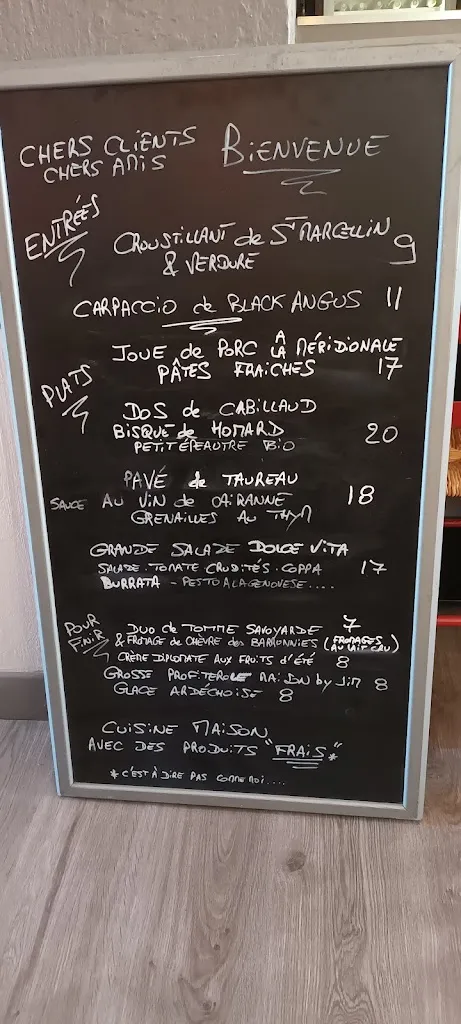 CHERS CLIENTS
CHERS AMIS
BIENVENUE
ENTRÉES
CROUSTILLANT de ST MARCELLIN
& VERDURE 9
CARPACCIO de BLACK ANGUS 11
PLATS
JOUE de PORC À LA MÉRIDIONALE
PÂTES FRAICHES 17
DOS de CABILLAUD
BISQUE de HOMARD 20
PETIT ÉPEAUTRE BIO
PAVÉ de TAUREAU
SAUCE AU VIN DE CAIRANNE 18
GRENAILLES AU THYM
GRANDE SALADE DOLCE VITA
SALADE. TOMATE CRUDITÉS. COPPA 17
BURRATA - PESTO A LA GENOVESE....
POUR FINIR
DUO de TOMME SAVOYARDE 7
& FROMAGE de CHÈVRE des BARONNIES (FROMAGES AU LAIT CRU)
CRÈME DIPLOMATE AUX FRUITS D'ÉTÉ 8
GROSSE PROFITEROLE MAISON by JIM 8
GLACE ARDÉCHOISE 8
CUISINE MAISON
AVEC DES PRODUITS "FRAIS"*
* C'EST À DIRE PAS COMME MOI....